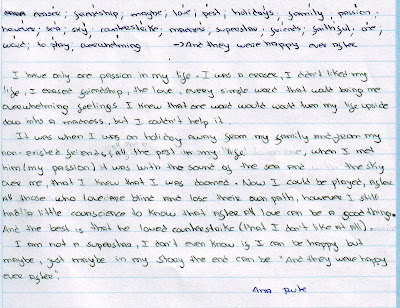 eraser; friendship, maybe; love; pest; holidays; family; passion;
however; sea; sky; counterstrike; madness; superstar; friends; faithful; one;
word; to play; overwhelming → And they were happy ever after
I have only one passion in my life. I was a eraser, I didn't liked my
life, I erased friendship, the love, every simple word that would bring me
overwhelming feelings. I knew that one word would turn my life upside
down into a madness, but I couldn't help it.
It was when I was on holiday away from my family and from my
non-existed friends, all the pest in my life, when I met
him (my passion) it was with the sound of the sea and the sky
over me, that I knew that I was doomed. Now I could be played, after
all those who love are blind and lose their own path, however I still
had a little counscience to know that after all love can be a good thing.
And the best is that he loved counterstrike (that I don't like at all).
I am not a superstar, I don't even know if I can be happy but
maybe, just maybe in my story the end can be "And they were happy
ever after".
Ana Rute